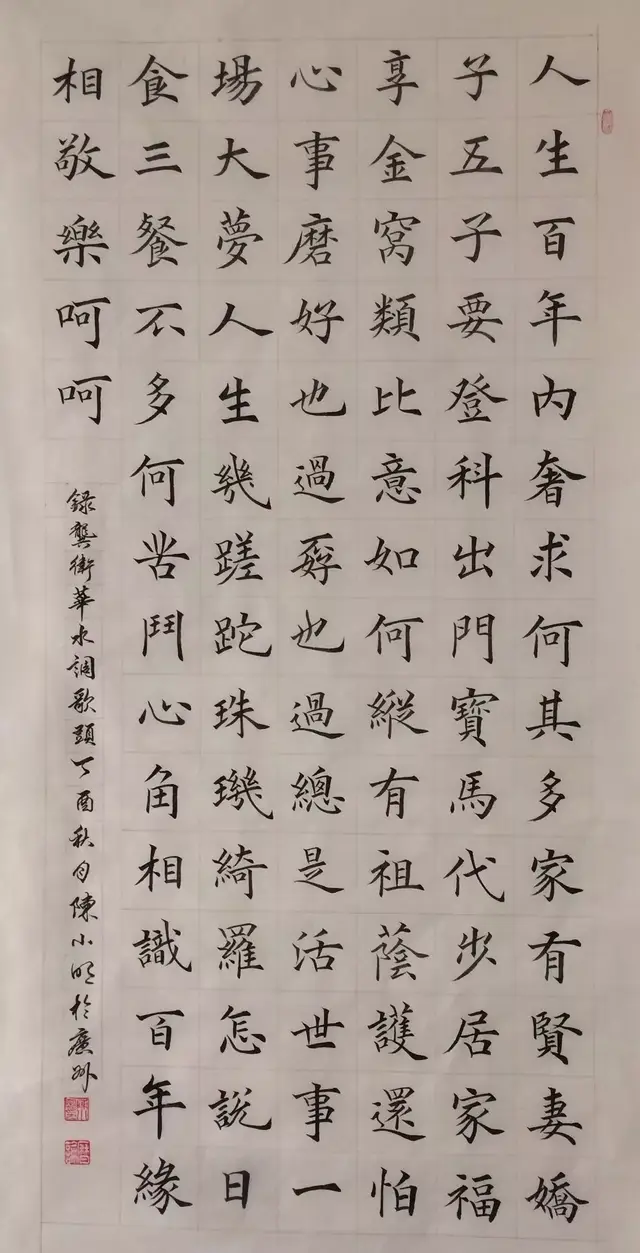 人生百年内奢求何其多家有賢妻嬌
子五子要登科出門寶馬代步居家福
享金窩類比意如何縱有祖蔭護還怕
心事磨好也過孬也過總是活世事一
場大夢人生幾蹉跎珠璣綺羅怎說日
食三餐不多何苦鬥心角相識百年緣
相敬樂呵呵
録龔衛華水調歌頭丁酉秋月陳小明於廣州